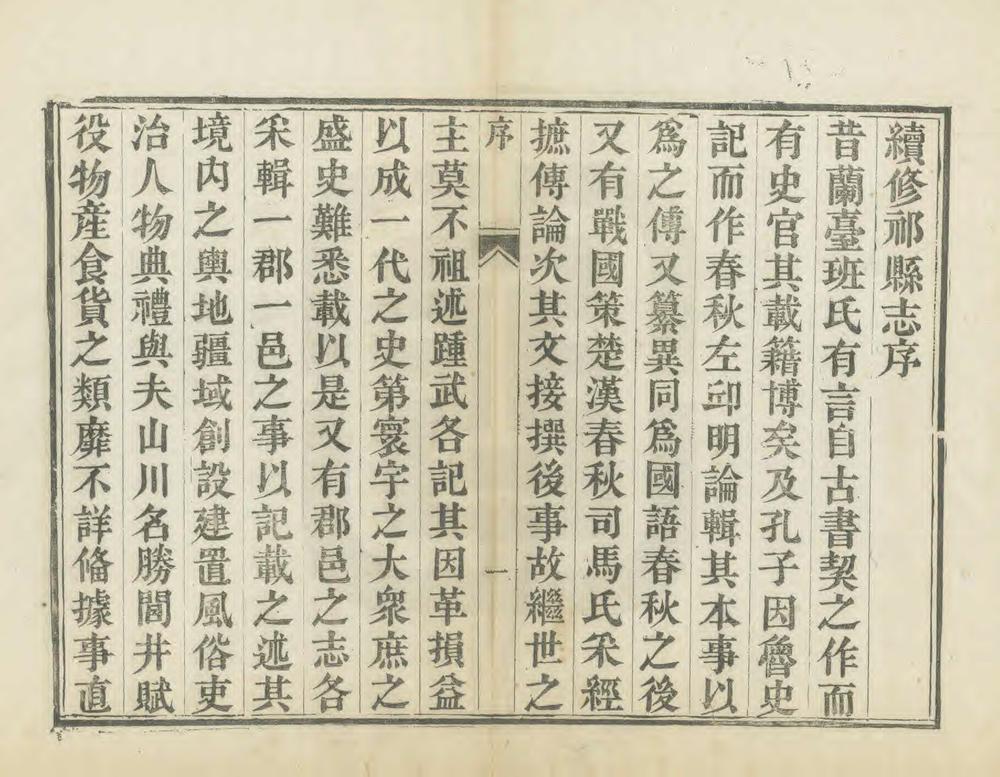 續修祁縣志序
昔蘭臺班氏有言自古書契之作而
有史官其載籍博矣及孔子因魯史
記而作春秋左邱明論輯其本事以
爲之傳又纂異同爲國語春秋之後
又有戰國策楚漢春秋司馬氏采經
摭傳論次其文接撰後事故繼世之
序
一
主莫不祖述踵武各記其因革損益
以成一代之史第寰宇之大衆庶之
盛史難悉載以是又有郡邑之志各
采輯一郡一邑之事以記載之述其
境內之輿地疆域創設建置風俗吏
治人物典禮與夫山川名勝閭井賦
役物産食貨之類靡不詳備據事直